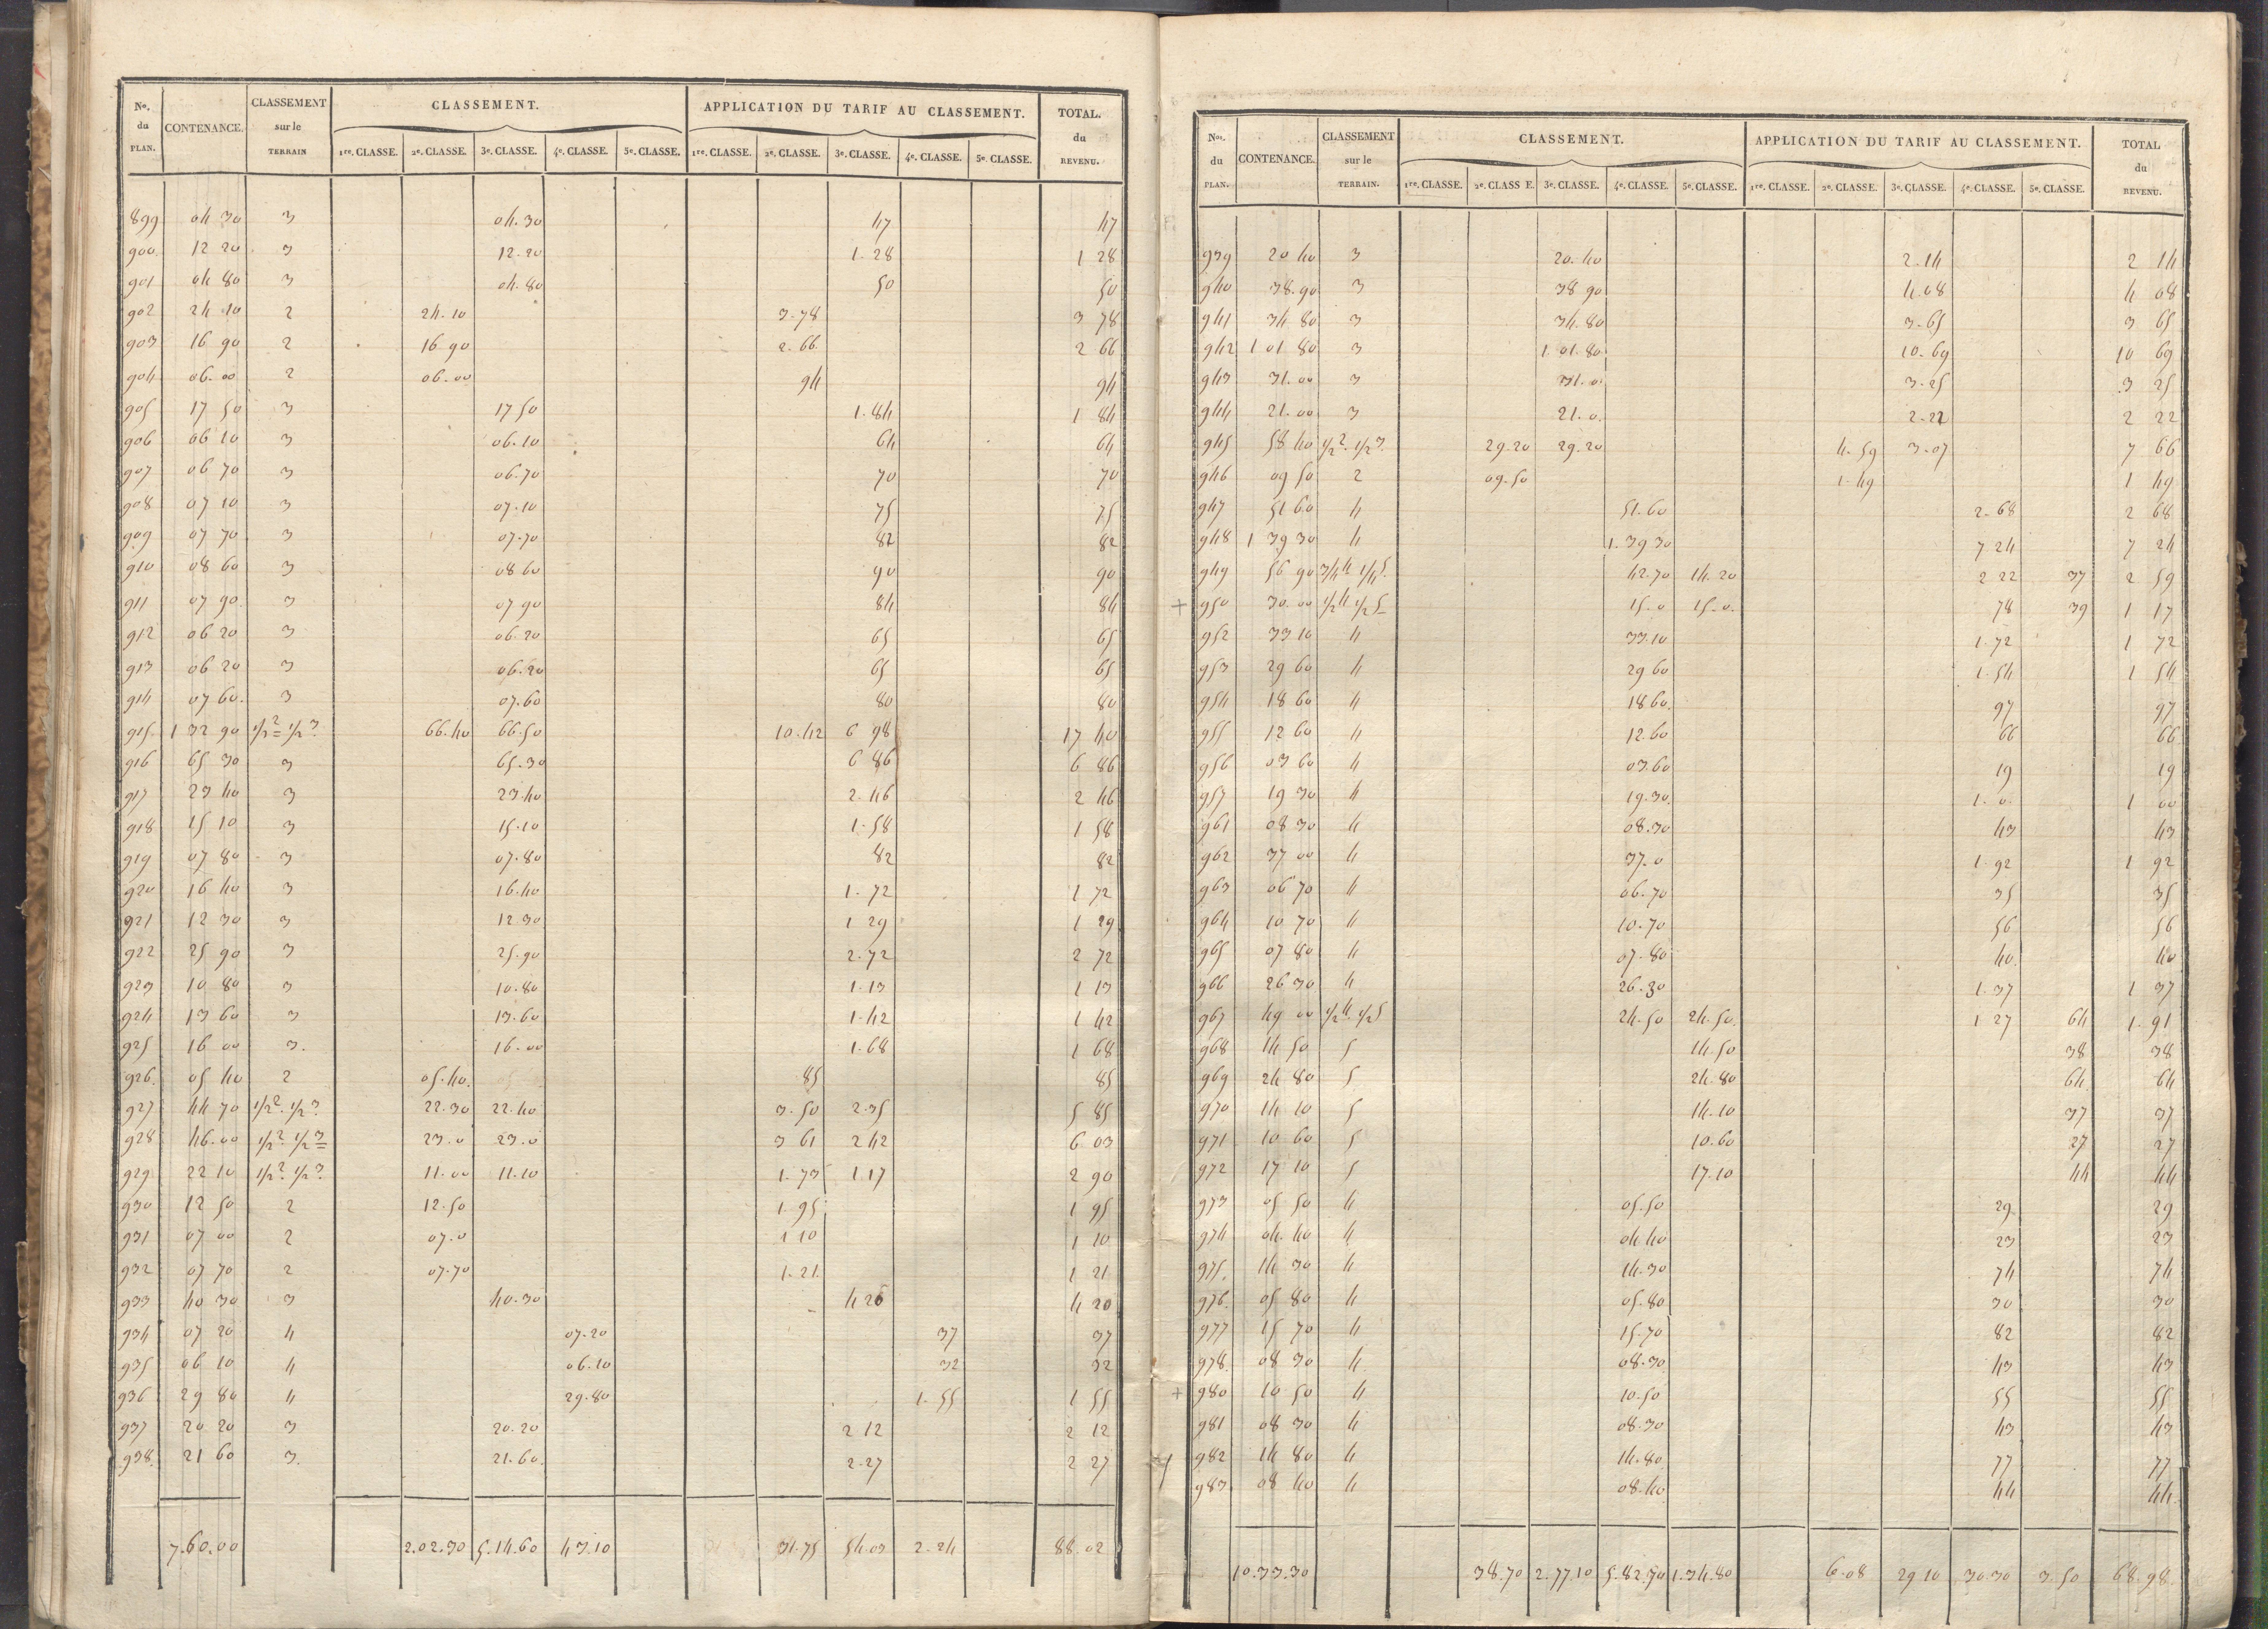 Nos. du PLAN. CONTENANCE. CLASSEMENT sur le TERRAIN CLASSEMENT. APPLICATION DU TARIF AU CLASSEMENT. TOTAL. du REVENU.
1re. CLASSE. 2e. CLASSE. 3e. CLASSE. 4e. CLASSE. 5e. CLASSE. 1re. CLASSE. 2e. CLASSE. 3e. CLASSE. 4e. CLASSE. 5e. CLASSE.
899 04 30 3 04.30 47 47
900 12 20 3 12.20 1.28 1 28
901 04 80 3 04.80 50 50
902 24 10 2 24.10 3.78 3 78
903 16 90 2 16 90 2.66 2 66
904 06.00 2 06.00 94 94
905 17 50 3 17 50 1.84 1 84
906 06 10 3 06.10 64 64
907 06 70 3 06.70 70 70
908 07 10 3 07.10 75 75
909 07 70 3 07.70 82 82
910 08 60 3 08 60 90 90
911 07 90 3 07 90 84 84
912 06 20 3 06.20 65 65
913 06 20 3 06.20 65 65
914 07 60. 3 07.60 80 80
915 1 32 90 1/2 2 1/2 3. 66.40 66.50 10.42 6 98 17 40
916 65 30 3 65.30 6 86 6 86
917 23 40 3 23.40 2.46 2 46
918 15 10 3 15.10 1.58 1 58
919 07 80 3 07.80 82 82
920 16 40 3 16.40 1.72 1 72
921 12 30 3 12 30 1 29 1 29
922 25 90 3 25.90 2.72 2 72
923 10 80 3 10.80 1.13 1 13
924 13 60 3 13.60 1.42 1 42
925 16 00 3. 16.00 1.68 1 68
926 05 40 2 05.40. 85 85
927 44 70 1/2 2. 1/2 3. 22.30 22.40 3.50 2.35 5 85
928 46.00 1/2 2. 1/2 3 23.0 23.0 3 61 2 42 6 03
929 22 10 1/2 2. 1/2 3. 11.00 11.10 1.73 1.17 2 90
930 12 50 2 12.50 1.95 1 95
931 07 00 2 07.0 1 10 1 10
932 07 70 2 07.70 1.21. 1 21
933 40 30 3 40.30 4 20 4 20
934 07 20 4 07.20 37 37
935 06 10 4 06.10 32 32
936 29 80 4 29.80 1.55 1 55
937 20 20 3 20.20 2 12 2 12
938. 21 60 3. 21.60. 2.27 2 27
7.60.00 2.02.30 5.14.60 43.10 31.75 54.03 2.24 88.02
Nos. du PLAN. CONTENANCE. CLASSEMENT sur le TERRAIN. CLASSEMENT. APPLICATION DU TARIF AU CLASSEMENT. TOTAL du REVENU.
1re. CLASSE. 2e. CLASS E. 3e. CLASSE. 4e. CLASSE. 5e. CLASSE. 1re. CLASSE. 2e. CLASSE. 3e. CLASSE. 4e. CLASSE. 5e. CLASSE.
939 20 40 3 20.40 2.14 2 14
940 38.90 3 38 90 4.08 4 08
941 34 80 3 34.80 3.65 3 65
942 1 01 80 3 1.01.80 10.69 10 69
943 31.00 3 31.0. 3.25 3 25
944 21.00 3 21.0. 2.22 2 22
945 58 40 1/2 2. 1/2 3. 29.20 29.20 4.59 3.07 7 66
946 09 50 2 09.50 1.49 1 49
947 51 60 4 51.60 2.68 2 68
948 1 39 30 4 1.39 30 7 24 7 24
949 56 90 3/4 4 1/4 5. 42.70 14.20 2 22 37 2 59
+ 950 30.00 1/2 4 1/2 5 15.0 15.0. 78 39 1 17
952 33 10 4 33.10 1.72 1 72
953 29 60 4 29 60 1.54 1 54
954 18 60 4 18 60. 97 97
955 12 60 4 12.60 66 66
956 03 60 4 03.60 19 19
957 19 30 4 19.30. 1.0. 1 00
961 08 30 4 08.30 43 43
962 37 00 4 37.0 1.92 1 92
963 06 70 4 06.70 35 35
964 10 70 4 10.70 56 56
965 07 80 4 07.80 40. 40
966 26 30 4 26.30 1.37 1 37
967 49 00 1/2 4. 1/2 5 24.50 24.50. 1 27 64 1.91
968 14 50 5 14.50 38 38
969 24 80 5 24.80 64. 64
970 14 10 5 14.10 37 37
971 10 60 5 10.60 27 27
972 17 10 5 17.10 44 44
973 05 50 4 05.50 29. 29
974 04.40 4 04 40 23 23
975. 14 30 4 14.30 74 74
976. 05 80 4 05.80 30 30
977 15 70 4 15.70 82 82
978. 08 30 4 08.30 43 43
+ 980 10 50 4 10.50 55 55
981 08 30 4 08.30 43 43
982 14 80 4 14.80 77 77
983 08 40 4 08.40 44 44.
10.33.30 38.70 2.77.10 5.82.70 1.34.80 6.08 29 10 30.30 3.50 68.98.